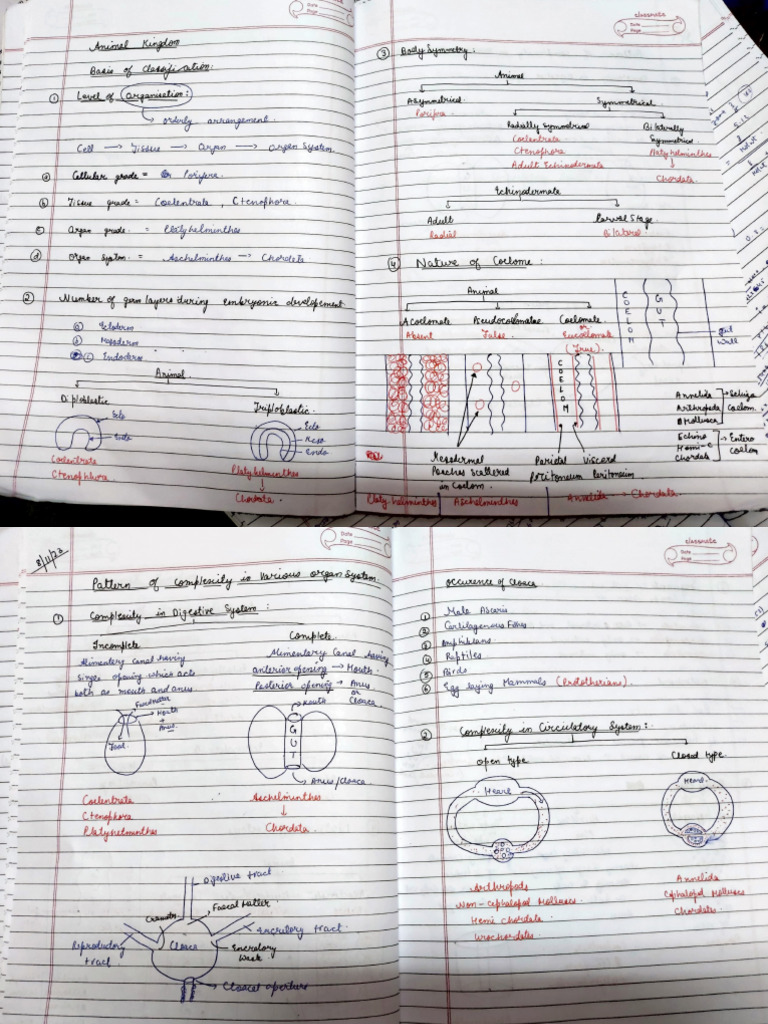 Animal Kingdom
Basis of Classification:
① Level of Organisation:
orderly arrangement.
Cell → Tissue → Organ → Organ System.
ⓐ Cellular grade = Porifera.
ⓑ Tissue grade = Coelentrata, Ctenophora.
ⓒ Organ grade = Platyhelminthes
ⓓ Organ System = Aschelminthes → Chordata
② Number of germ layers during embryonic developement
ⓐ Ectoderm
ⓑ Mesoderm
ⓒ Endoderm
Animal
Diploblastic
Triploblastic.
Ecto
Endo
Ecto
Meso
Endo
Coelentrata
Ctenophora
Platyhelminthes
↓
Chordata.
classmate
Date
Page
③ Body Symmetry:
Animal
Asymmetrical
Porifera
Symmetrical
Radially Symmetrical
Coelentrata
Ctenophora
Adult Echinodermata
Bilaterally
Symmetrical
Platyhelminthes
↓
Chordata.
Echinodermata
Adult
Radial
Larval Stage
Bilateral
④ Nature of Coelome:
Animal
Acoelomate
Absent
Pseudocoelomatae
False.
Coelomate
or
Eucoelomate
(True).
COELOM
GUT
gut
wall
COELOM
Annelida
Arthropoda
Mollusca
Schizo
Coelom
Echino
Hemi-C
Chordata
Entero
coelom
Mesodermal
Pouches scattered
in Coelom
Parietal
peritoneum
Visceral
Peritoneum
Platyhelminthes
Aschelminthes
Annelida → Chordata.
Date
Page
8/11/23
Pattern of Complexity in Various organ System.
① Complexity in Digestive System:
Incomplete
Alimentary Canal having
single opening which acts
both as mouth and anus
Complete.
Alimentary Canal having
anterior opening → Mouth.
Posterior opening → Anus
or
Cloaca.
Mouth
+
Anus.
Food
Mouth
GUT
Anus/Cloaca
Coelentrata
Ctenophora
Platyhelminthes
Aschelminthes
↓
Chordata.
Digestive tract
Faecal Matter
Gametes
Excretory tract.
Reproductory
tract
Cloaca
Excretory
Waste
Cloacal aperture
classmate
Date
Page
Occurence of Cloaca
① Male Ascaris
② Cartilagenous Fishes
③ Amphibians
④ Reptiles
⑤ Birds
⑥ Egg laying Mammals (Prototherians).
② Complexity in Circulatory System:
Open type
Closed type
Heart
Heart
Arthropods
Non-Cephalopod Molluscs.
Hemi chordata
Urochordates
Annelida
Cephalopod Molluscs
Chordates